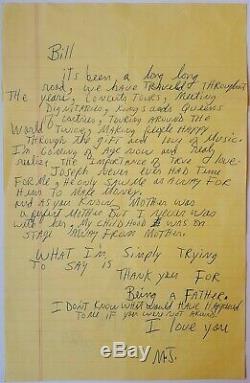 Bill
its been a long long
road, we have TRAVELED THROUGHOUT
THE years, CONCERTS TOURS, MEETING
DIGNITARIES, KINGS and QUEENS
of countries, TOURING AROUND THE
World TWICE, MAKING PEOPLE HAPPY
THROUGH the gift and love of MUSIC.
I'm coming of Age now and realy
realize THE IMPORTANCE OF TRUE love
JOSEPH Never ever HAD TIME
FOR ME, He only SAW me AS A WAY FOR
HIM To MAKE MONEY.
and AS you KNOW, MOTHER was
a perfect MOTHER BUT I Never was
with her. My CHILDHOOD was ON
STAGE AWAY FROM MOTHER.
WHAT I'M SIMPLY TRYING
TO SAY IS
THANK you FOR
Being A FATHER.
I DON'T KNOW WHAT would HAVE HAPPENED
TO ME if you WERE not AROUND
I love you
M.J.